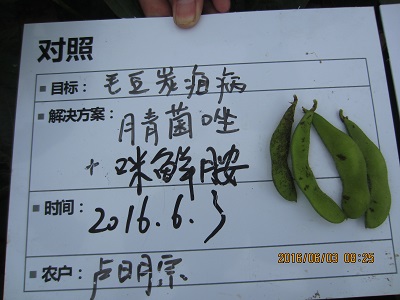 对照
目标：毛豆炭疽病
解决方案：腈菌唑
+咪鲜胺
时间：2016.6.3
2016/06/03 08:25
农户：卢明宗